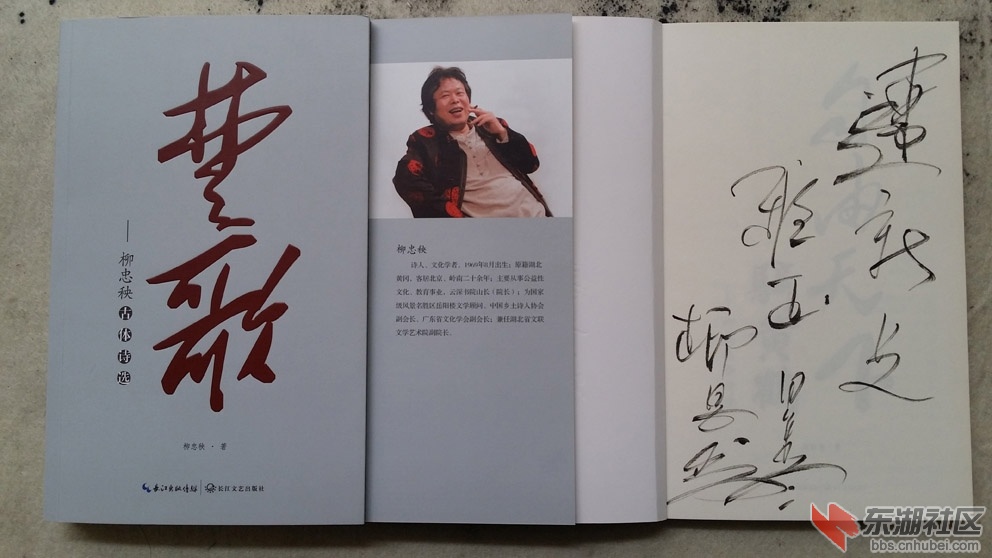 楚歌
——柳忠秧古体诗选
柳忠秧·著
长江出版传媒 长江文艺出版社
柳忠秧
诗人、文化学者，1969年8月出生；原籍湖北
黄冈，客居北京、岭南二十余年；主要从事公益性
文化、教育事业。云深书院山长（院长）；为国家
级风景名胜区岳阳楼文学顾问、中国乡土诗人协会
副会长、广东省文化学会副会长；兼任湖北省文联
文学艺术院副院长。
雅正
柳忠秧
东湖社区
bbs.cnhubei.com